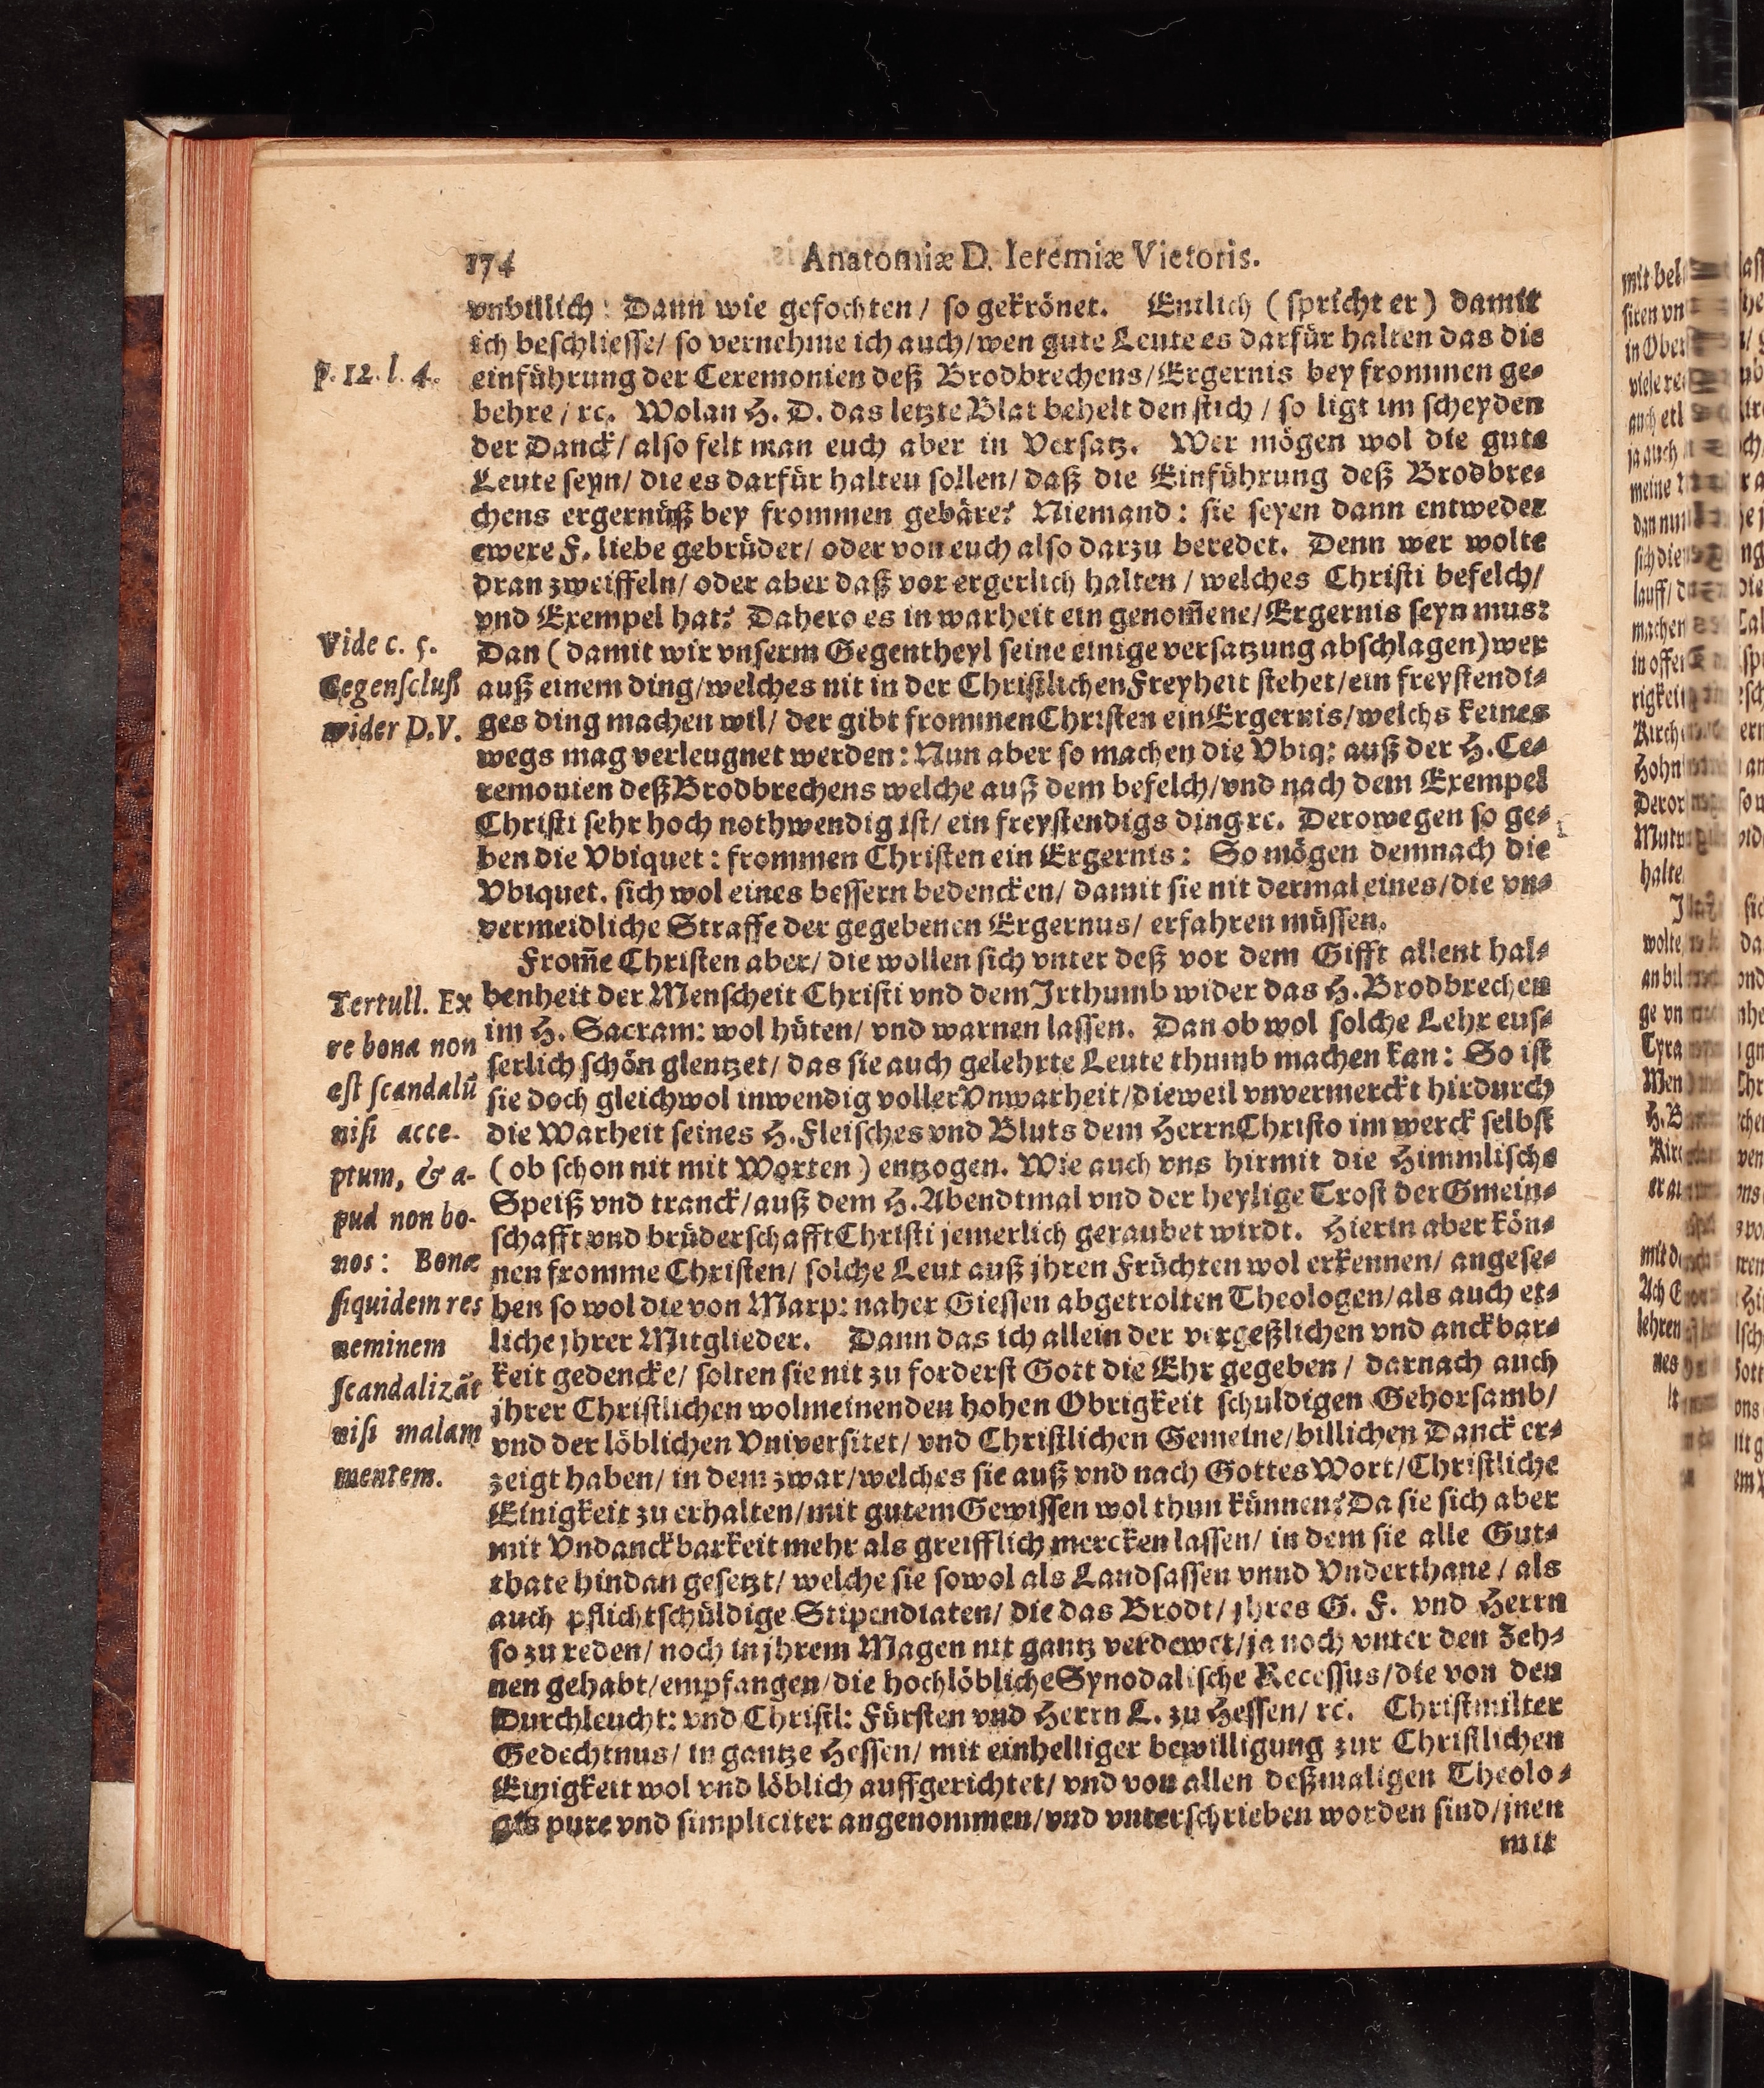 174
Anatomiæ D. Ieremiæ Victoris.
vnbillich: Dann wie gefochten/ so gekrönet. Entlich (spricht er) damit
ich beschliesse/ so vernehme ich auch/wen gute Leute es darfür halten das die
p. 12. l. 4.
einführung der Ceremonien deß Brodbrechens/Ergernis bey frommen ge-
behre/ rc. Wolan H. D. das letzte Blat behelt den stich/ so ligt im scheyden
der Danck/ also felt man euch aber in Versatz. Wer mögen wol die gute
Leute seyn/ die es darfür halten sollen/ daß die Einführung deß Brodbre-
chens ergernüß bey frommen gebäre? Niemand: sie seyen dann entweder
ewere F. liebe gebrüder/ oder von euch also darzu beredet. Denn wer wolte
dran zweiffeln/ oder aber daß vor ergerlich halten/ welches Christi befelch/
vnd Exempel hat? Dahero es in warheit ein genom̃ene/Ergernis seyn mus?
Vide c. 5.
Gegensclusß
wider D.V.
Dan (damit wir vnserm Gegentheyl seine einige versatzung abschlagen) wer
auß einem ding/welches nit in der Christlichen Freyheit stehet/ein freystendi-
ges ding machen wil/ der gibt frommen Christen ein Ergernis/welchs keines
wegs mag verleugnet werden: Nun aber so machen die Vbiq: auß der H. Ce-
remonien deß Brodbrechens welche auß dem befelch/vnd nach dem Exempel
Christi sehr hoch nothwendig ist/ ein freystendigs ding rc. Derowegen so ge-
ben die Vbiquet: frommen Christen ein Ergernis: So mögen demnach die
Vbiquet. sich wol eines bessern bedencken/ damit sie nit dermal eines/die vn-
vermeidliche Straffe der gegebenen Ergernus/ erfahren müssen.
From̃e Christen aber/ die wollen sich vnter deß vor dem Gifft allent hal-
Tertull. Ex
re bona non
est scandalū
nisi acce-
ptum, & a-
pud non bo-
nos: Bonæ
siquidem res
neminem
scandalizāt
nisi malam
mentem.
benheit der Menscheit Christi vnd dem Irthumb wider das H. Brodbrechen
im H. Sacram: wol hüten/ vnd warnen lassen. Dan ob wol solche Lehr eus-
serlich schön glentzet/ das sie auch gelehrte Leute thumb machen kan: So ist
sie doch gleichwol inwendig voller Vnwarheit/dieweil vnvermerckt hirdurch
die Warheit seines H. Fleisches vnd Bluts dem Herrn Christo im werck selbst
(ob schon nit mit Worten) entzogen. Wie auch vns hirmit die Himmlische
Speiß vnd tranck/auß dem H. Abendtmal vnd der heylige Trost der Gmein-
schafft vnd brüderschafft Christi jemerlich geraubet wirdt. Hierin aber kön-
nen fromme Christen/ solche Leut auß jhren Früchten wol erkennen/ angese-
hen so wol die von Marp: naher Giessen abgetrolten Theologen/als auch et-
liche jhrer Mitglieder. Dann das ich allein der vergeßlichen vnd anckbar-
keit gedencke/ solten sie nit zu forderst Gott die Ehr gegeben/ darnach auch
jhrer Christlichen wolmeinenden hohen Obrigkeit schuldigen Gehorsamb/
vnd der löblichen Vniversitet/ vnd Christlichen Gemeine/billichen Danck er-
zeigt haben/ in dem zwar/welches sie auß vnd nach Gottes Wort/Christliche
Einigkeit zu erhalten/mit gutem Gewissen wol thun künnen? Da sie sich aber
mit Vndanckbarkeit mehr als greifflich mercken lassen/ in dem sie alle Gut-
thate hindan gesetzt/ welche sie sowol als Landsassen vnnd Vnderthane/ als
auch pflichtschüldige Stipendiaten/ die das Brodt/ jhres G. F. vnd Herrn
so zu reden/ noch in jhrem Magen nit gantz verdewet/ja noch vnter den Zeh-
nen gehabt/empfangen/die hochlöbliche Synodalische Recessus/die von den
Durchleucht: vnd Christl: Fürsten vnd Herrn L. zu Hessen/ rc. Christmilter
Gedechtnus/ in gantze Hessen/ mit einhelliger bewilligung zur Christlichen
Einigkeit wol vnd löblich auffgerichtet/ vnd von allen deßmaligen Theolo-
gis pure vnd simpliciter angenommen/vnd vnterschrieben worden sind/jnen
mit